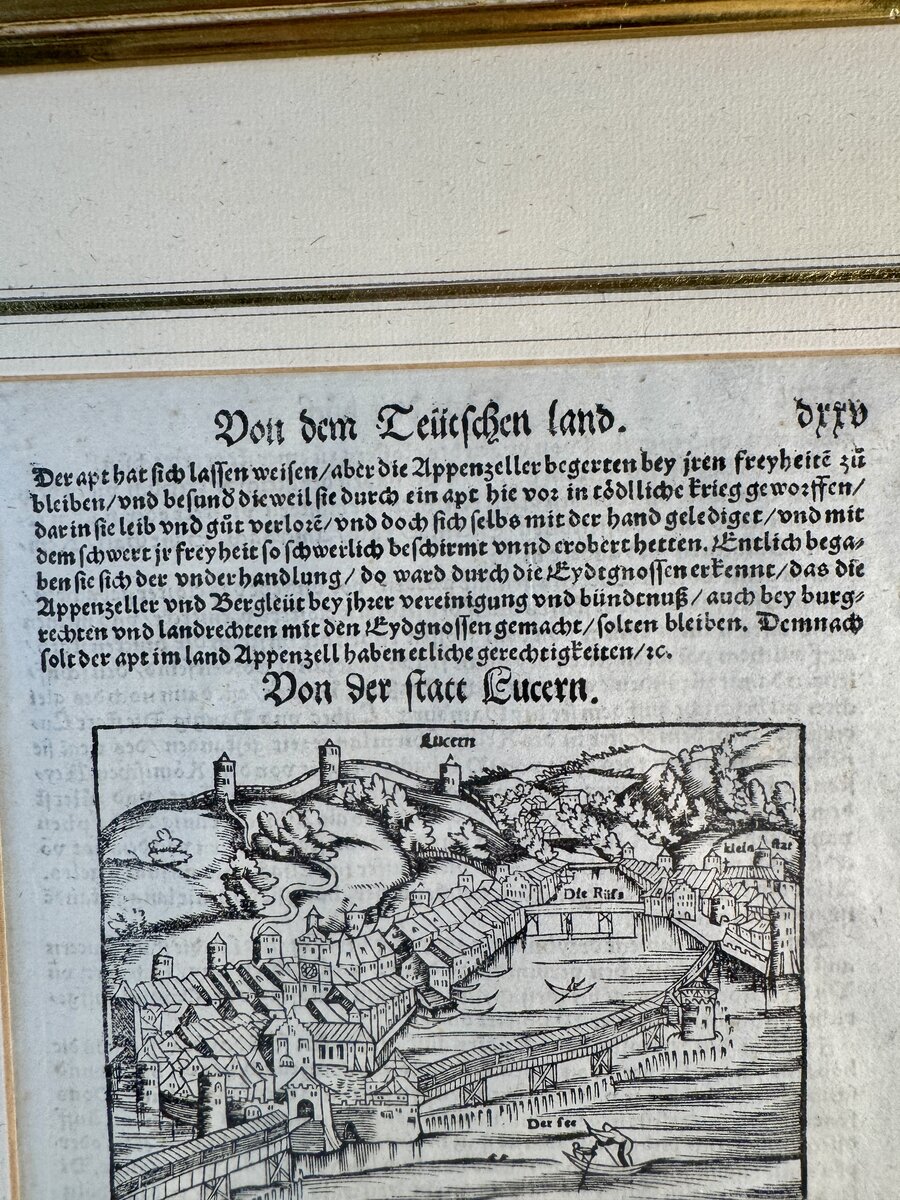 Von dem Teütschen land.
dxxv
Der apt hat sich lassen weisen/aber die Appenzeller begerten bey jren freyheitē zů
bleiben/vnd besund dieweil sie durch ein apt hie vor in tödlliche krieg geworffen/
darin sie leib vnd gůt verlorē/vnd doch sich selbs mit der hand gelediget/vnd mit
dem schwert jr freyheit so schwerlich beschirmt vnnd erobert hetten. Entlich bega⸗
ben sie sich der vnderhandlung/do ward durch die Eydtgnossen erkennt/das die
Appenzeller vnd Bergleüt bey jhrer vereinigung vnd bündtnuß/auch bey burg⸗
rechten vnd landrechten mit den Eydgnossen gemacht/solten bleiben. Demnach
solt der apt im land Appenzell haben etliche gerechtigkeiten/ꝛc.
Von der statt Lucern.
Lucern
klein stat
Die Rüss
Der see